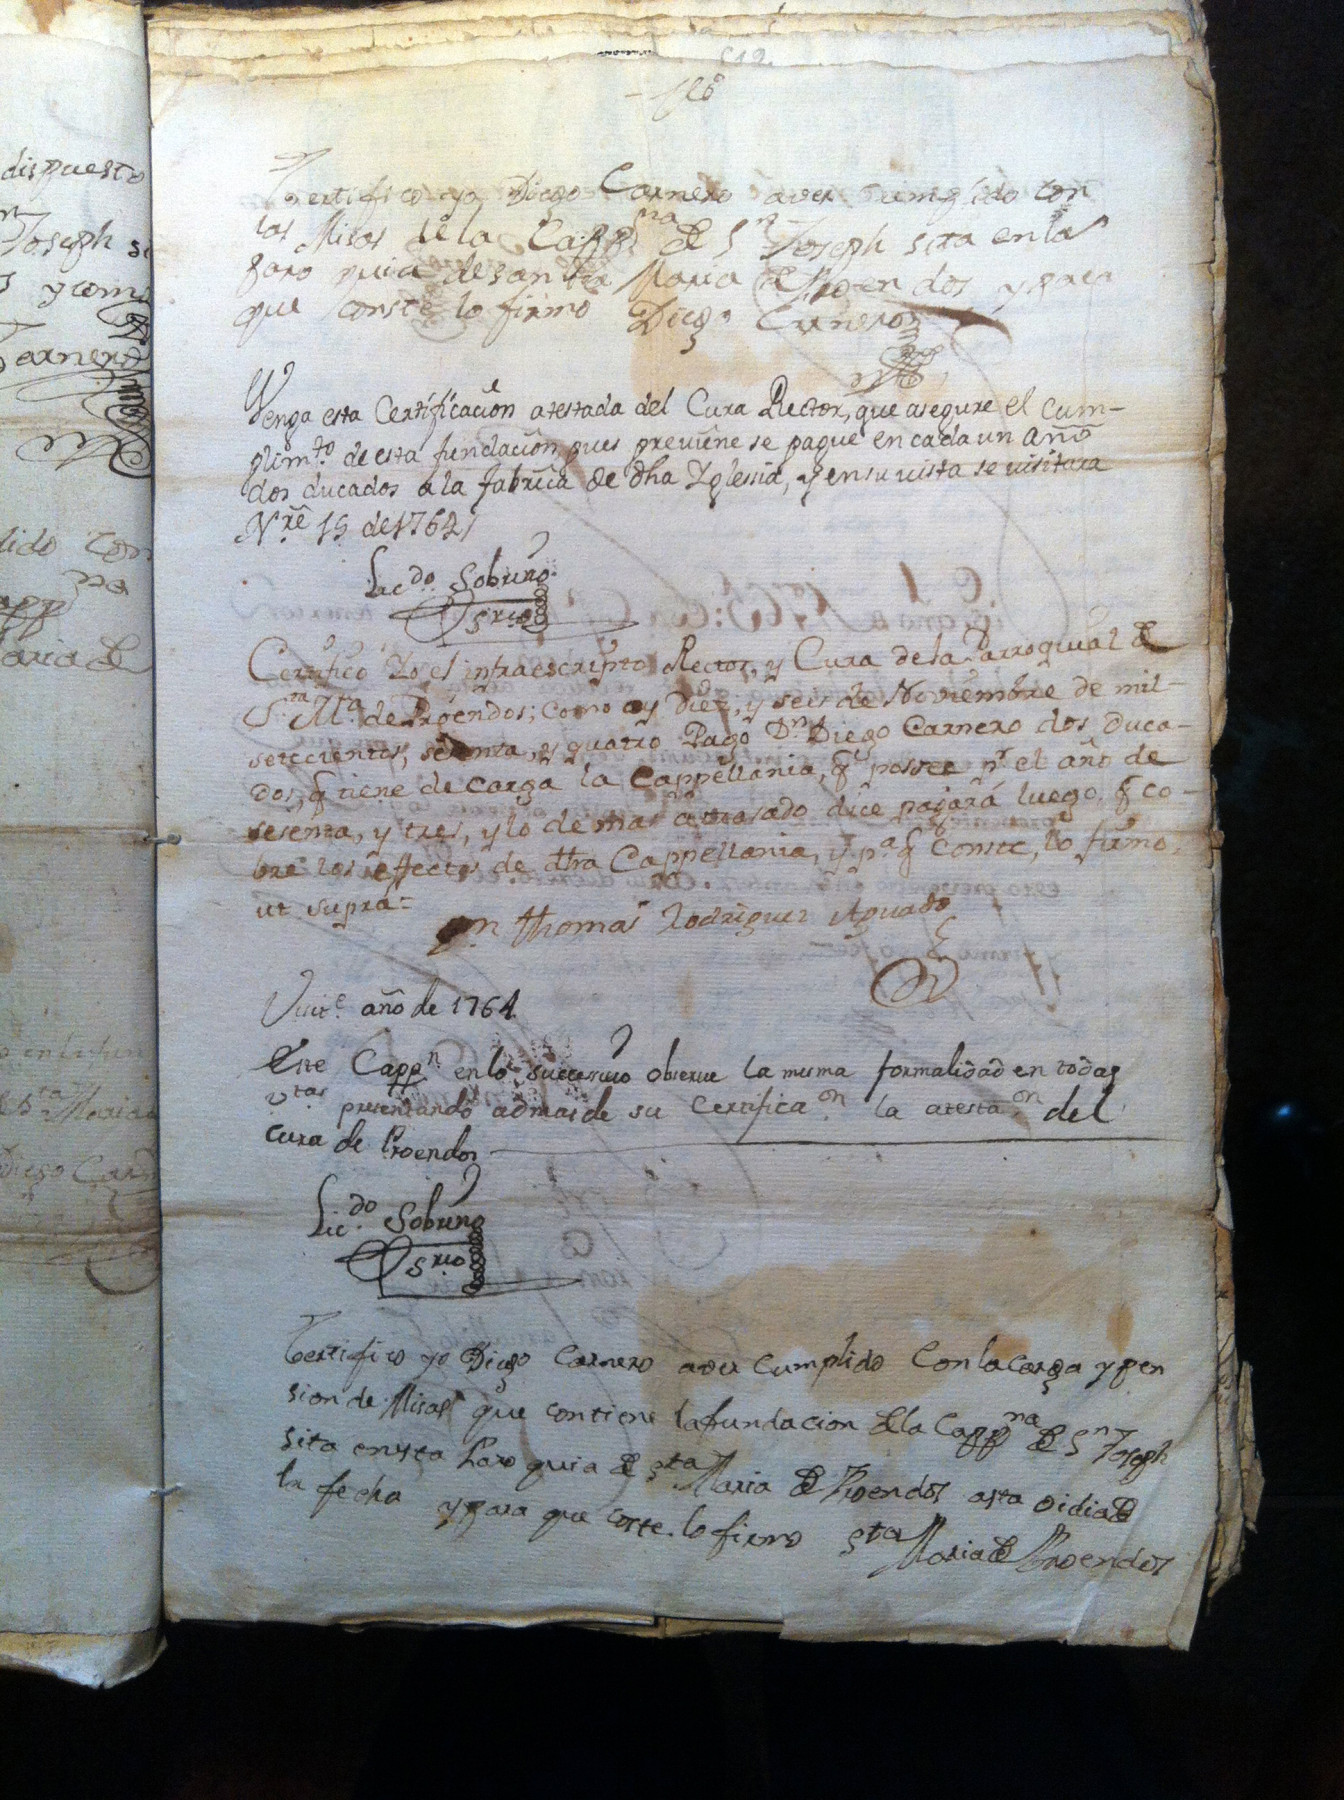 dispuesto
Joseph si
y como
Carnero
dido Con
na
app
aria de
Sta Maria
Diego Car
Certifico yo Diego Carnero aver Cumplido con
las Misas de la Cappna de Sn Joseph sita en la
paro quia de santa Maria de Proendos y para
que conste lo firmo Diego Carnero
Venga esta Certificacion atestada del Cura Rector, que asegure el cum-
plimto de esta fundacion, pues previene se pague en cada un año
dos ducados a la fabrica de dha Yglesia, y en su vista se visitara
Nre 15 de 1764
Licdo Sobrino
Srio
Certifico Yo el infraescripto Rector, y Cura de la Parroquial de
Sta Ma de Proendos; como oy Diez, y seis de Noviembre de mil
setecientos, sesenta, y quatro Pagó Dn Diego Carnero dos Duca-
dos, q tiene de carga la Cappellania, q posee pr el año de
sesenta, y tres, y lo de mas atrasado dice pagará luego, q co-
bre los effectos de dha Cappellania, y pa q conste, lo firmo,
ut supra=
Dn Thomas Rodriguez Aguado
Visite año de 1764
Este Cappn en lo successivo observe la misma formalidad en todas
vtas presentando admas de su Certificaon la atestaon del
Cura de Proendos
Licdo Sobrino
Srio
Certifico yo Diego Carnero aver Cumplido Con la carga y pen
sion de Misas que contiene la fundacion de la Cappna de Sn Joseph
sita en esta Paro quia de Sta Maria de Proendos asta oi dia de
la fecha y para que coste lo firmo Sta Maria de Proendos